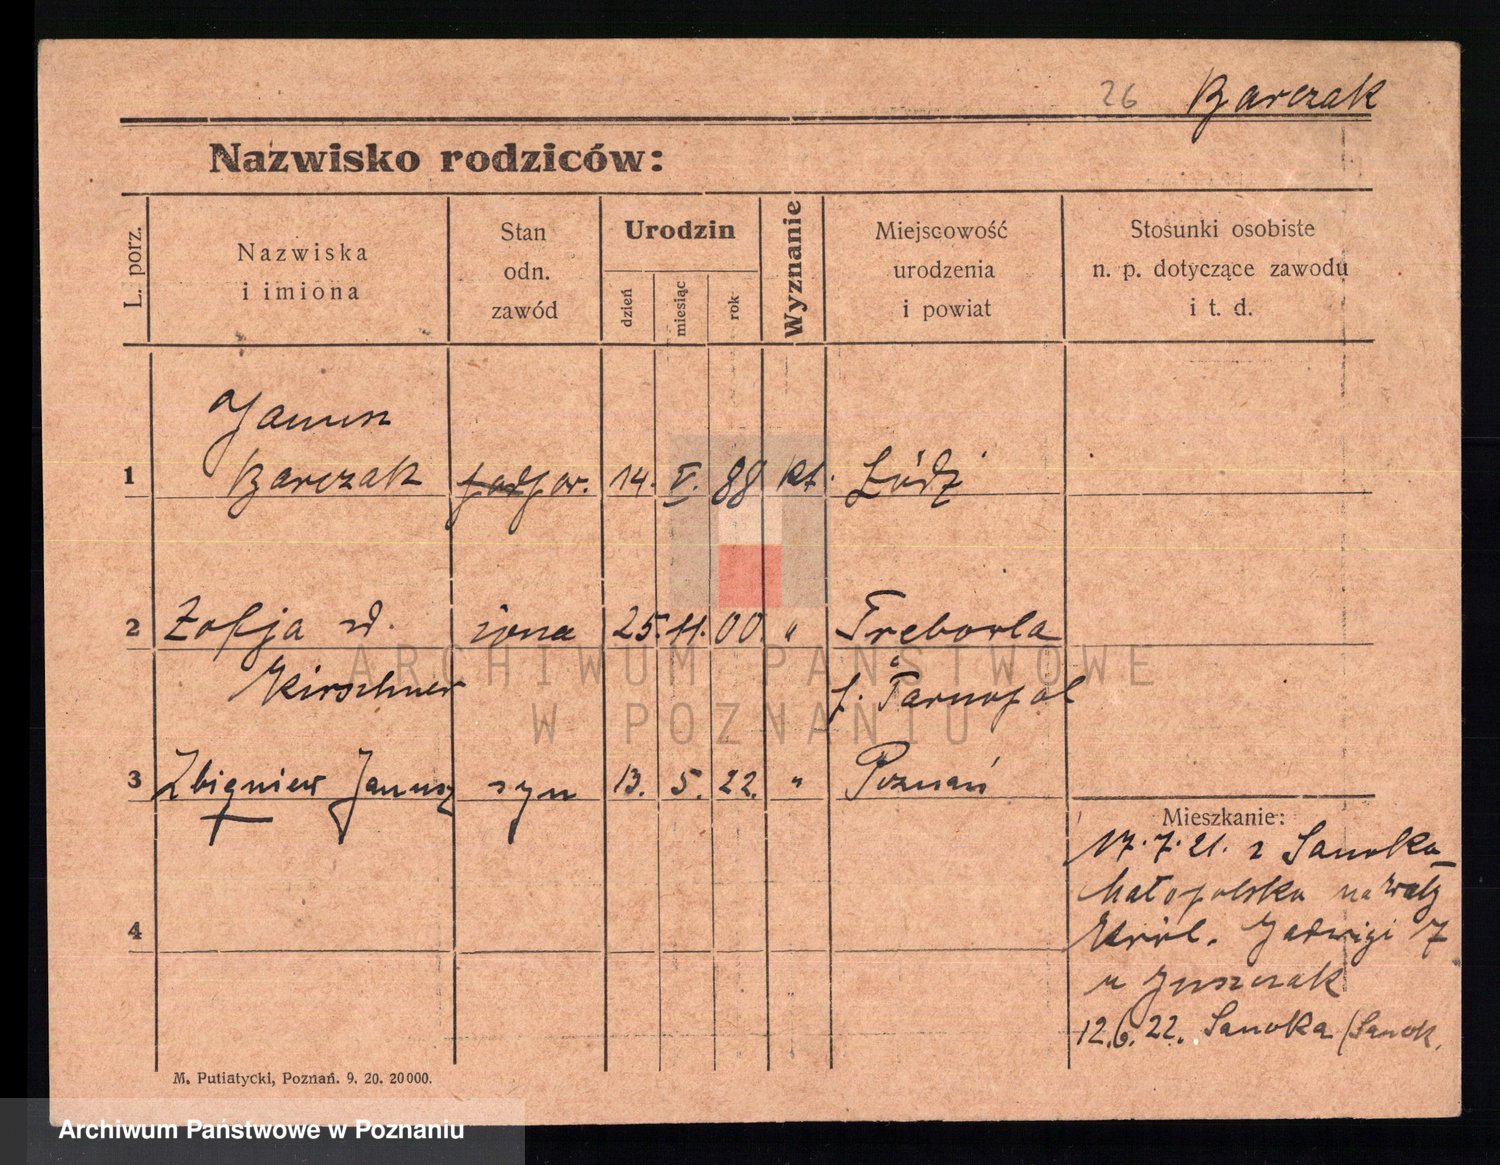 26 Barczak
Nazwisko rodziców:
L. porz.
Nazwiska
i imiona
Stan
odn.
zawód
Urodzin
dzień
miesiąc
rok
Wyznanie
Miejscowość
urodzenia
i powiat
Stosunki osobiste
n. p. dotyczące zawodu
i t. d.
Janusz
1 Barczak 14. V. 88 kt. Łódź
2 Zofja żona 25. 11. 00. " Trebovla
Kirschner p. Tarnopol
3 Zbigniew Janusz syn 13. 5. 22. " Poznań
Mieszkanie:
17.7.21. z Sanoka
Małopolska na Wały
4 Król. Jadwigi 7
u Juszczak
12.6.22. Sanoka (Sanok.
M. Putiatycki, Poznań. 9. 20. 20000.
ARCHIWUM PAŃSTWOWE
W POZNANIU
Archiwum Państwowe w Poznaniu